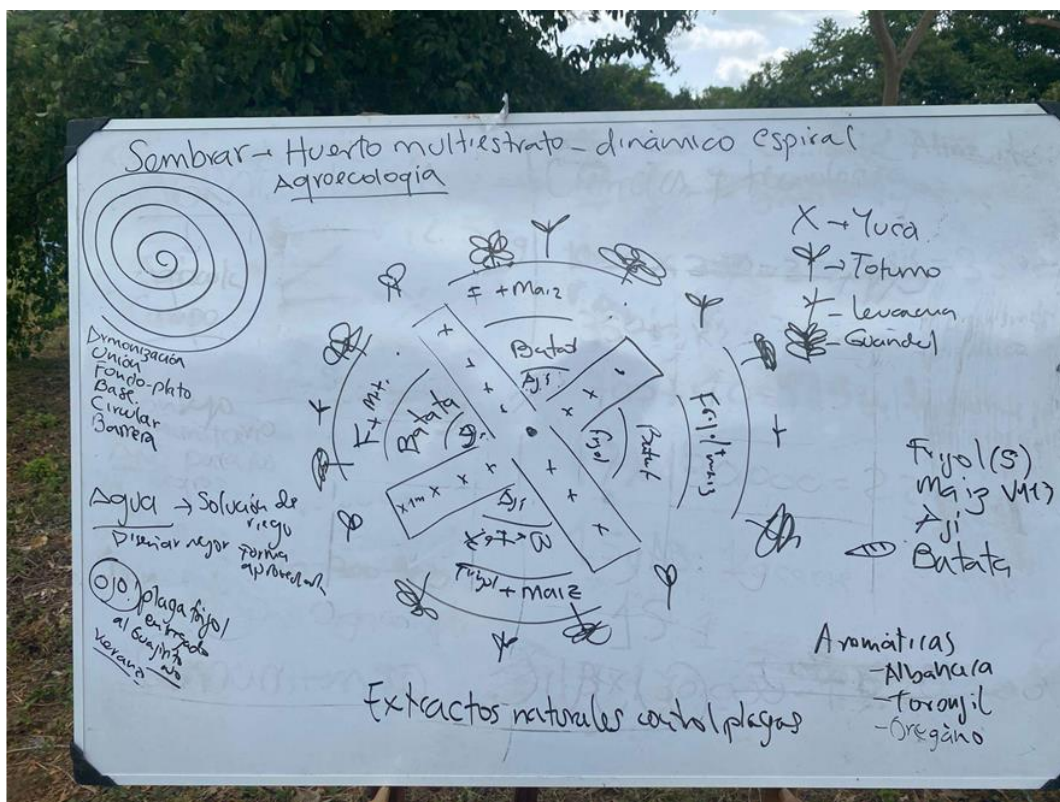 Sembrar → Huerto multiestrato - dinámico espiral
Agroecología
Armonización
Unión
Fondo-plato
Base
Circular
Barrera
Agua → Solución de
riego
Diseñar mejor forma
aprovechar
OJO! plaga frijol
al Guajirito
verano
F + Maiz
Batat
Aji
F + M
Batata
Aji
Frijol
Batat
Frijol + maiz
x 1m x x
Aji
Frijol + maiz
X → Yuca
→ Totumo
→ Leucaena
- Guandul
Frijol(S)
Maiz V113
Aji
Batata
Aromáticas
- Albahaca
- Toronjil
- Oregano
Extractos naturales control plagas